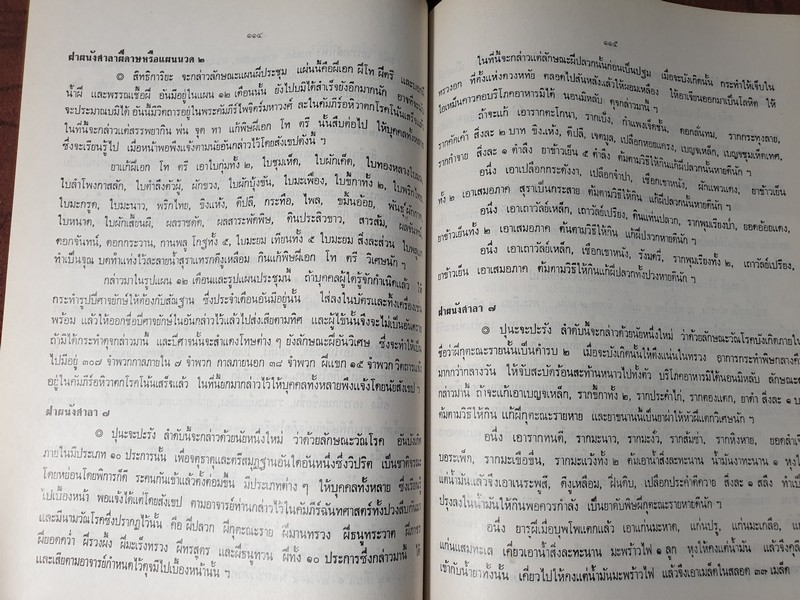 ๑๑๔
ฝาผนังศาลาผีดาษหรือแผนนวด ๒
๏ สิทธิการิยะ จะกล่าวลักษณะแผนฝีประชุม แผ่นนี้คือฝีเอก ฝีโท ฝีตรี และแผนนี้
น้ำผึ้ และพรรณเชื้อฝี อันมีอยู่ในแผน ๑๒ เดือนนั้น ยังไปบมิได้สำเร็จยังอีกมากนัก อาจ
จะประมาณบมิได้ อันนี้มีวิตถารอยู่ในพระคัมภีร์ไพจิตร์มหาวงศ์ และในคัมภีร์อหิวาตกโรคโน้นเสร็จแล้ว
ในที่นี้จะกล่าวแต่สรรพยากิน พ่น จุด ทา แก้พิษฝีเอก โท ตรี นั้นสืบต่อไป ให้บุคคลทั้งหลาย
ซึ่งจะเรียนรู้ไป เมื่อหน้าพอพึงแจ้งตามนัยอันกล่าวไว้โดยสังเขปดังนี้ ฯ
ยาแก้ฝีเอก โท ตรี เอาใบกุ่มทั้ง ๒, ใบชุมเห็ด, ใบผักเค็ด, ใบทองหลางใบมน,
ใบลำโพงกาสลัก, ใบตำลึงตัวผู้, ผักขวง, ใบผักบุ้งขัน, ใบมะเฟือง, ใบขี้กาทั้ง ๒, ใบพริกไทย,
ใบมะกรูด, ใบมะนาว, พริกไทย, ขิงแห้ง, ดีปลี, กระทือ, ไพล, ขมิ้นอ้อย, พันธุ์ผักกาด,
ใบหนาด, ใบผักเสี้ยนผี, ผลราชดัด, ผลสาระพัดพิษ, ดินประสิวขาว, สารส้ม, ผลจันทน์,
ดอกจันทน์, ดอกกระวาน, กานพลู โกฐทั้ง ๕, ใบมะยม เทียนทั้ง ๕ ใบมะยม สิ่งละส่วน
ทำเป็นจุณ บดทำแท่งไว้ละลายน้ำสุราแทรกดีงูเหลือม กินแก้พิษฝีเอก โท ตรี วิเศษนัก ฯ
กล่าวมาในรูปแผน ๑๒ เดือนและรูปแผนประชุมนี้ ถ้าบุคคลผู้ใดรู้จักกำเนิดแล้ว ให้
กระทำรูปปีศาจยักษ์ให้ต้องกับสัณฐาน ซึ่งประจำเดือนอันมีอยู่นั้น ใส่ลงในบัตรและทั้งเครื่อง
พร้อม แล้วให้ออกชื่อปีศาจยักษ์ในอันกล่าวไว้แล้วไปส่งเสียตามทิศ และผู้ไข้นั้นจึงจะไม่เป็นอันตราย
ถ้ามิได้กระทำดุจกล่าวมานี้ และปีศาจนั้นจะสำแดงโทษต่าง ๆ ยังลักษณะฝีอันวิเศษ ซึ่งจะทำให้
ไปมีอยู่ ๓๐๗ จำพวกกาลภายใน ๗ จำพวก กาลภายนอก ๓๗ จำพวก ฝีแขก ๑๕ จำพวก วิตถารแล้ว
อยู่ในคัมภีร์อหิวาตกโรคโน้นเสร็จแล้ว ในที่นี้ยกมากล่าวไว้ให้บุคคลทั้งหลายพึงแจ้งโดยนัยสังเขป ฯ
ฝาผนังศาลา ๗
๏ ปุนะจะปะรัง ลำดับนี้จะกล่าวด้วยนัยหนึ่งใหม่ ว่าด้วยลักษณะวัณโรค อันบังเกิด
ภายในมีประเภท ๑๐ ประการนั้น เพื่อจตุธาตุและตรีสมุฏฐานอันใดอันหนึ่งซึ่งวิปริต เป็นชาติจรณะ
โดยหย่อนโดยพิการก็ดี ระคนกันเข้าแล้วตั้งต่อมขึ้น มีประเภทต่าง ๆ ให้บุคคลทั้งหลาย ซึ่งเรียนรู้
ไปเบื้องหน้า พอแจ้งได้แต่โดยสังเขป ตามอาจารย์ท่านกล่าวไว้ในคัมภีร์ฉันทศาสตร์ทั้งปวงสืบกันมา
และมีนามวัณโรคซึ่งปรากฏไว้นั้น คือ ฝีปลวก ฝีกุตะณะราย ฝีมานทรวง ฝีธนูทระวาต
ฝียอดคว่ำ ฝีรวงผึ้ง ฝีมะเร็งทรวง ฝีทรสูตร และฝีธนูทวน ฝีทั้ง ๑๐ ประการซึ่งกล่าวมานี้ ให้
และเสียตามอาจารย์กำหนดไว้ดุจมีไปเบื้องหน้านั้น ฯ
๑๑๕
ในที่นี้จะกล่าวแต่ลักษณะฝีปลวกนั้นก่อนเป็นปฐม เมื่อจะบังเกิดนั้น กระทำให้เจ็บใน
ทรวงอก ที่ตั้งแห่งดวงหทัย ตลอดไปสันหลังแล้วให้ผอมเหลือง ให้อาเจียนออกมาเป็นโลหิต ให้
ไอเหม็นคาวคอบริโภคอาหารมิได้ นอนมิหลับ ดุจกล่าวมานี้ ฯ
ถ้าจะแก้ เอารากตะโกนา, รากเบ้ง, กำแพงเจ็ดชั้น, ดอกลั่นทม, รากกระทุงลาย,
รากคัดเค้า สิ่งละ ๒ บาท ขิงแห้ง, ดีปลี, เจตมูล, เปลือกหอยแครง, เบญจเหล็ก, เบญจชุมเห็ดเทศ,
รากกำจาย สิ่งละ ๑ ตำลึง ยาข้าวเย็น ๕ ตำลึง ต้มตามวิธีให้กินแก้ฝีปลวกนั้นหายดีนัก ฯ
อนึ่ง เอาเปลือกกระดังงา, เปลือกจำปา, เชือกเขาหนัง, ผักแพวแดง, ยาข้าวเย็น
ทั้ง ๒ เอาเสมอภาค สุราเป็นกระสาย ต้มตามวิธีให้กินแก้ฝีปลวกนั้นหายดีนัก ฯ
อนึ่ง เอาเถาวัลย์เหล็ก, เถาวัลย์เปรียง, ดินแท่นปลวก, รากพุมเรียงป่า, ยอดอ้อยแดง,
ยาข้าวเย็นทั้ง ๒ เอาเสมอภาค ต้มตามวิธีให้กินแก้ฝีปลวกหายดีนัก ฯ
อนึ่ง เอาเถาวัลย์เหล็ก, เชือกเขาหนัง, รังมดรี่, รากพุมเรียงทั้ง ๒, เถาวัลย์เปรียง,
ยาข้าวเย็น เอาเสมอภาค ต้มตามวิธีให้กินแก้ฝีปลวกทั้งปวงหายดีนัก ฯ
ฝาผนังศาลา ๗
๏ ปุนะจะปะรัง ลำดับนี้จะกล่าวด้วยนัยหนึ่งใหม่ ว่าด้วยลักษณะวัณโรคบังเกิดภายใน
ชื่อว่าฝีกุตะณะรายนั้นเป็นคำรบ ๒ เมื่อจะบังเกิดนั้นให้ตึงแน่นในทรวง อาการกระทำพิษกลางคืน
มากกว่ากลางวัน ให้จับสะบัดร้อนสะท้านหนาวไปทั้งตัว บริโภคอาหารมิได้นอนมิหลับ ลักษณะ
กล่าวมานี้ ถ้าจะแก้เอาเบญจเหล็ก, รากขี้กาทั้ง ๒, รากประคำไก่, รากตองแตก, ยาดำ สิ่งละ ๑
ต้มตามวิธีให้กิน แก้ฝีกุตะณะรายหาย และยาขนานนี้เป็นยาผ่าให้หัวฝีแตกวิเศษนัก ฯ
อนึ่ง เอารากทนดี, รากมะนาว, รากมะงั่ว, รากส้มซ่า, รากหิงหาย,
บอระเพ็ด, รากมะเขือขื่น, รากมะแว้งทั้ง ๒ ต้มเอาน้ำสิ่งละทะนาน น้ำมันงาทะนาน ๑ หุงให้คง
แต่น้ำมันแล้วจึงเอาเนระพูสี, ดีงูเหลือม, ฝิ่นดิบ, เปลือกประคำดีควาย สิ่งละ ๑ สลึง ทำเป็น
ปรุงลงในน้ำมันให้กินพอควรกำลัง เป็นยาดับพิษฝีกุตะณะรายหายดีนัก ฯ
อนึ่ง ยารุฝีเมื่อบุพโพแตกแล้ว เอาแก่นมะหาด, แก่นปรู, แก่นมะเกลือ,
แก่นแสมทะเล เคี่ยวเอาน้ำสิ่งละทะนาน มะพร้าวไฟ ๑ ลูก หุงให้คงแต่น้ำมัน แล้วจึง
เข้ากับน้ำยาทั้งนั้น เคี่ยวไปให้คงแต่น้ำมันมะพร้าวไฟ แล้วจึงเอาเมล็ดในสลอด ๓๓ เมล็ด